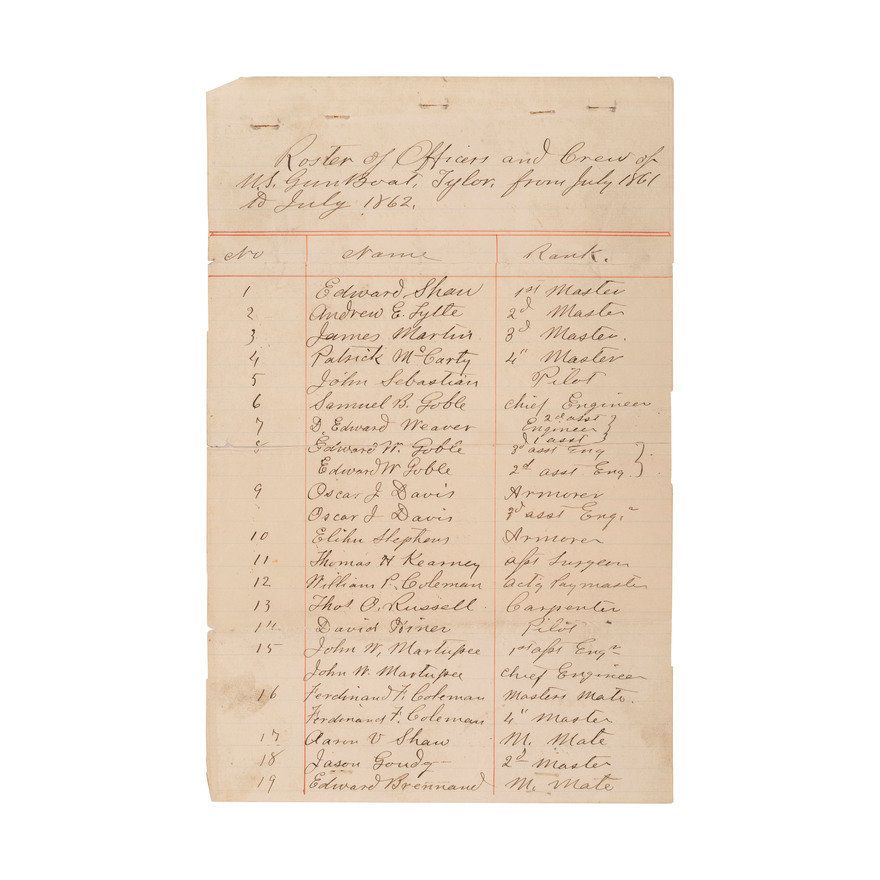 Roster of Officers and Crew of
U.S. GunBoat, Tylor, from July 1861
to July 1862.
No Name Rank.
1 Edward Shaw 1st Master
2 Andrew E. Lytle 2d Master
3 James Martin 3d Master.
4 Patrick McCarty 4" Master
5 John Sebastian Pilot
6 Samuel B. Goble Chief Engineer
2d asst
7 D. Edward Weaver Engineer
1 asst
8 Edward W. Goble 3d asst Eng
Edward W Goble 2d asst Eng.
9 Oscar J Davis Armorer
Oscar J Davis 3d asst Engr
10 Elihu Stephens Armorer
11 Thomas H Kearney asst Surgeon
12 William P. Coleman Actg Paymaster
13 Thos O. Russell Carpenter
14 David Hiner Pilot
15 John W. Martupee 1st asst Engr
John W. Martupee Chief Engineer
16 Ferdinand F. Coleman Masters Mate.
Ferdinand F. Coleman 4" Master
17 Aaron V Shaw M. Mate
18 Jason Goudy 2d Master
19 Edward Brennand M. Mate